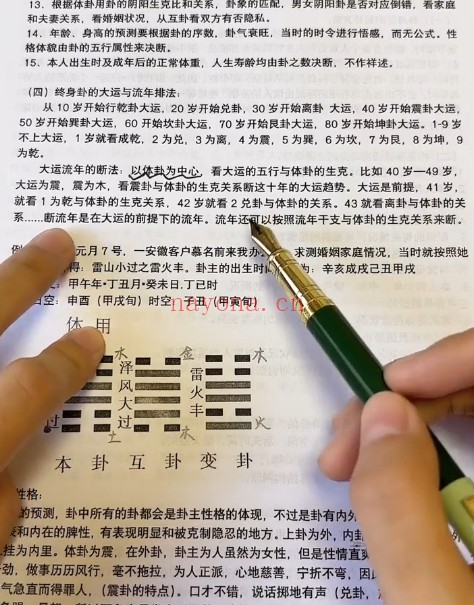 13. 根据体卦用卦的阴阳生克比和关系，卦象的匹配，男女阴阳卦是否对应倒错，看家庭
和夫妻关系，看婚姻状况，从互卦看双方有否隐私。
14. 年龄、身高的预测要根据卦的序数，卦气衰旺，当时的时令进行悟感，而无公式。性
格体貌由卦的五行属性来决断。
15. 本人出生时及成年后的正常体重，人生寿龄均由卦之数决断，不作祥述。
(四) 终身卦的大运与流年排法：
从 10 岁开始行乾卦大运，20 岁开始兑卦，30 岁开始离卦 大运，40 岁开始震卦大运，
50 岁开始巽卦大运，60 开始坎卦大运，70 岁开始艮卦大运，80 岁开始坤卦大运。1-9 岁
不上大运，1 岁就看成乾，2 为兑，3 为离，4 为震，5 为巽，6 为坎，7 为艮，8 为坤，9
为乾。
大运流年的断法：以体卦为中心，看大运的五行与体卦的生克。比如 40 岁—49 岁，
大运为震，震为木，看震卦与体卦的生克关系断这十年的大运趋势。大运是前提，41 岁，
就看 1 为乾与体卦的关系，42 岁就看 2 兑卦与体卦的关系。43 就看离卦与体卦的关
系……断流年是在大运的前提下的流年。流年还可以按照流年干支与体卦的生克关系来断。
例
元月 7 号，一安徽客户慕名前来我办
求测婚姻家庭情况，当时就按照她
得：雷山小过之雷火丰。卦主的出生时
为：辛亥戊戌己丑甲戌
：甲午年·丁丑月·癸未日.丁已时
日空：申酉（甲戌旬）时空 子丑（甲寅旬）
nayona.cn
体 用
水 金 木
泽风大过
雷火丰
过
土 木 火
本 卦 互 卦 变 卦
性格：
的预测，卦中所有的卦都会是卦主性格的体现，不过是卦有内外
表和内在的脾性，有表现明显和被克制隐忍的地方。上卦为外，内卦
挂为内里。体卦为震，在外卦，卦主为人虽然为女性，但是性情直爽
动，做事历历风行，毫不拖拉，为人正派，心地慈善，宁折不弯，因此
气急直而得罪人，（震卦的特点）。口才不错，说话掷地有声（兑卦，